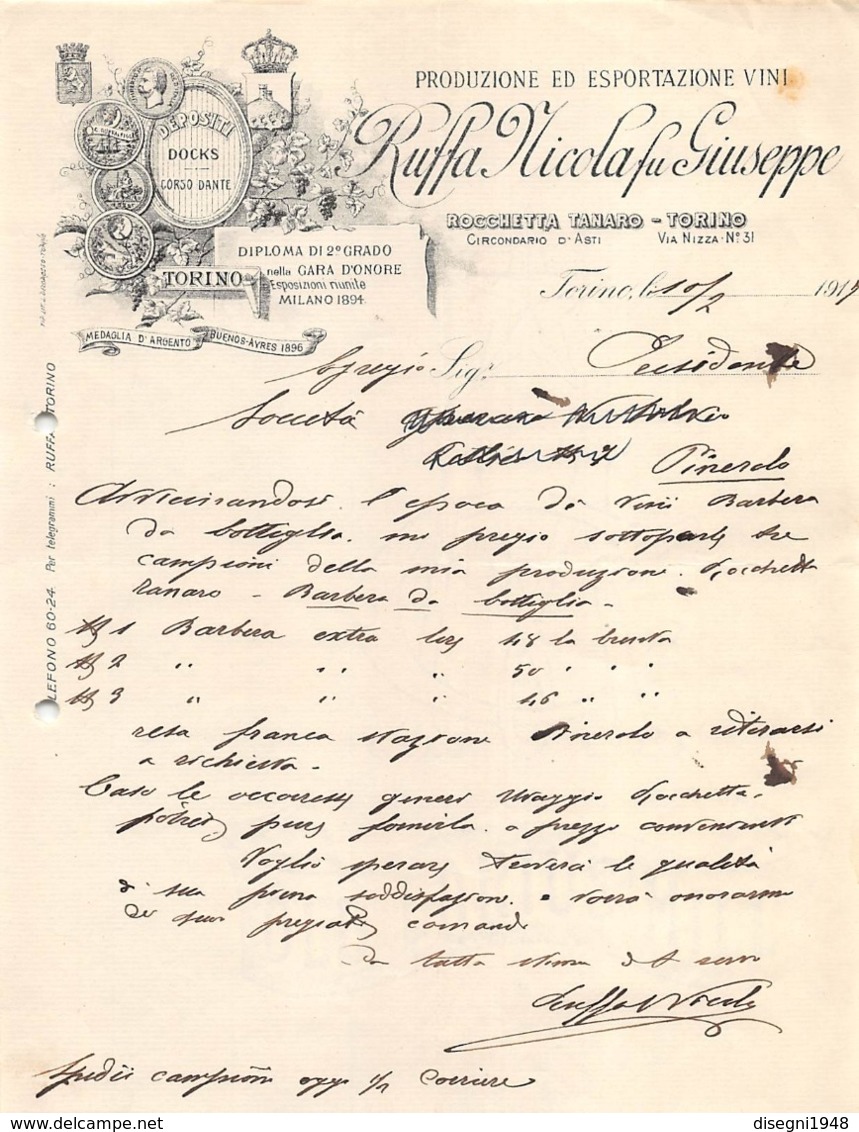 PRODUZIONE ED ESPORTAZIONE VINI
Ruffa Nicola fu Giuseppe
ROCCHETTA TANARO - TORINO
CIRCONDARIO D'ASTI VIA NIZZA - No 31
DEPOSITI
DOCKS
CORSO DANTE
TORINO
DIPLOMA DI 2o GRADO
nella GARA D'ONORE
Esposizioni riunite
MILANO 1894
MEDAGLIA D'ARGENTO BUENOS-AYRES 1896
LEFONO 60-24. Per telegrammi: RUFFA TORINO
Torino, li 10/2 191
Egregio Sigr. Presidente
Società
Pinerolo
Avvicinandosi l'epoca di vini Barbera
da bottiglia mi pregio sottoporle tre
campioni della mia produzione Rocchetta
Tanaro - Barbera da bottiglia -
N 1 Barbera extra lire 48 la brenta
N 2 " " " 50 " " "
N 3 " " " 46 " " "
resa franca stazione Pinerolo a ritirarsi
a richiesta.
Caso le occorress generi Rocchetta
potrei pure fornirla a prezzi convenienti
Voglio sperare troverà le qualità
di sua piena soddisfazione e vorrà onorarmi
dei suoi pregiati comandi
Con tutta stima
Ruffa Nicola
Spedii campioni oggi Corriere
disegni1948